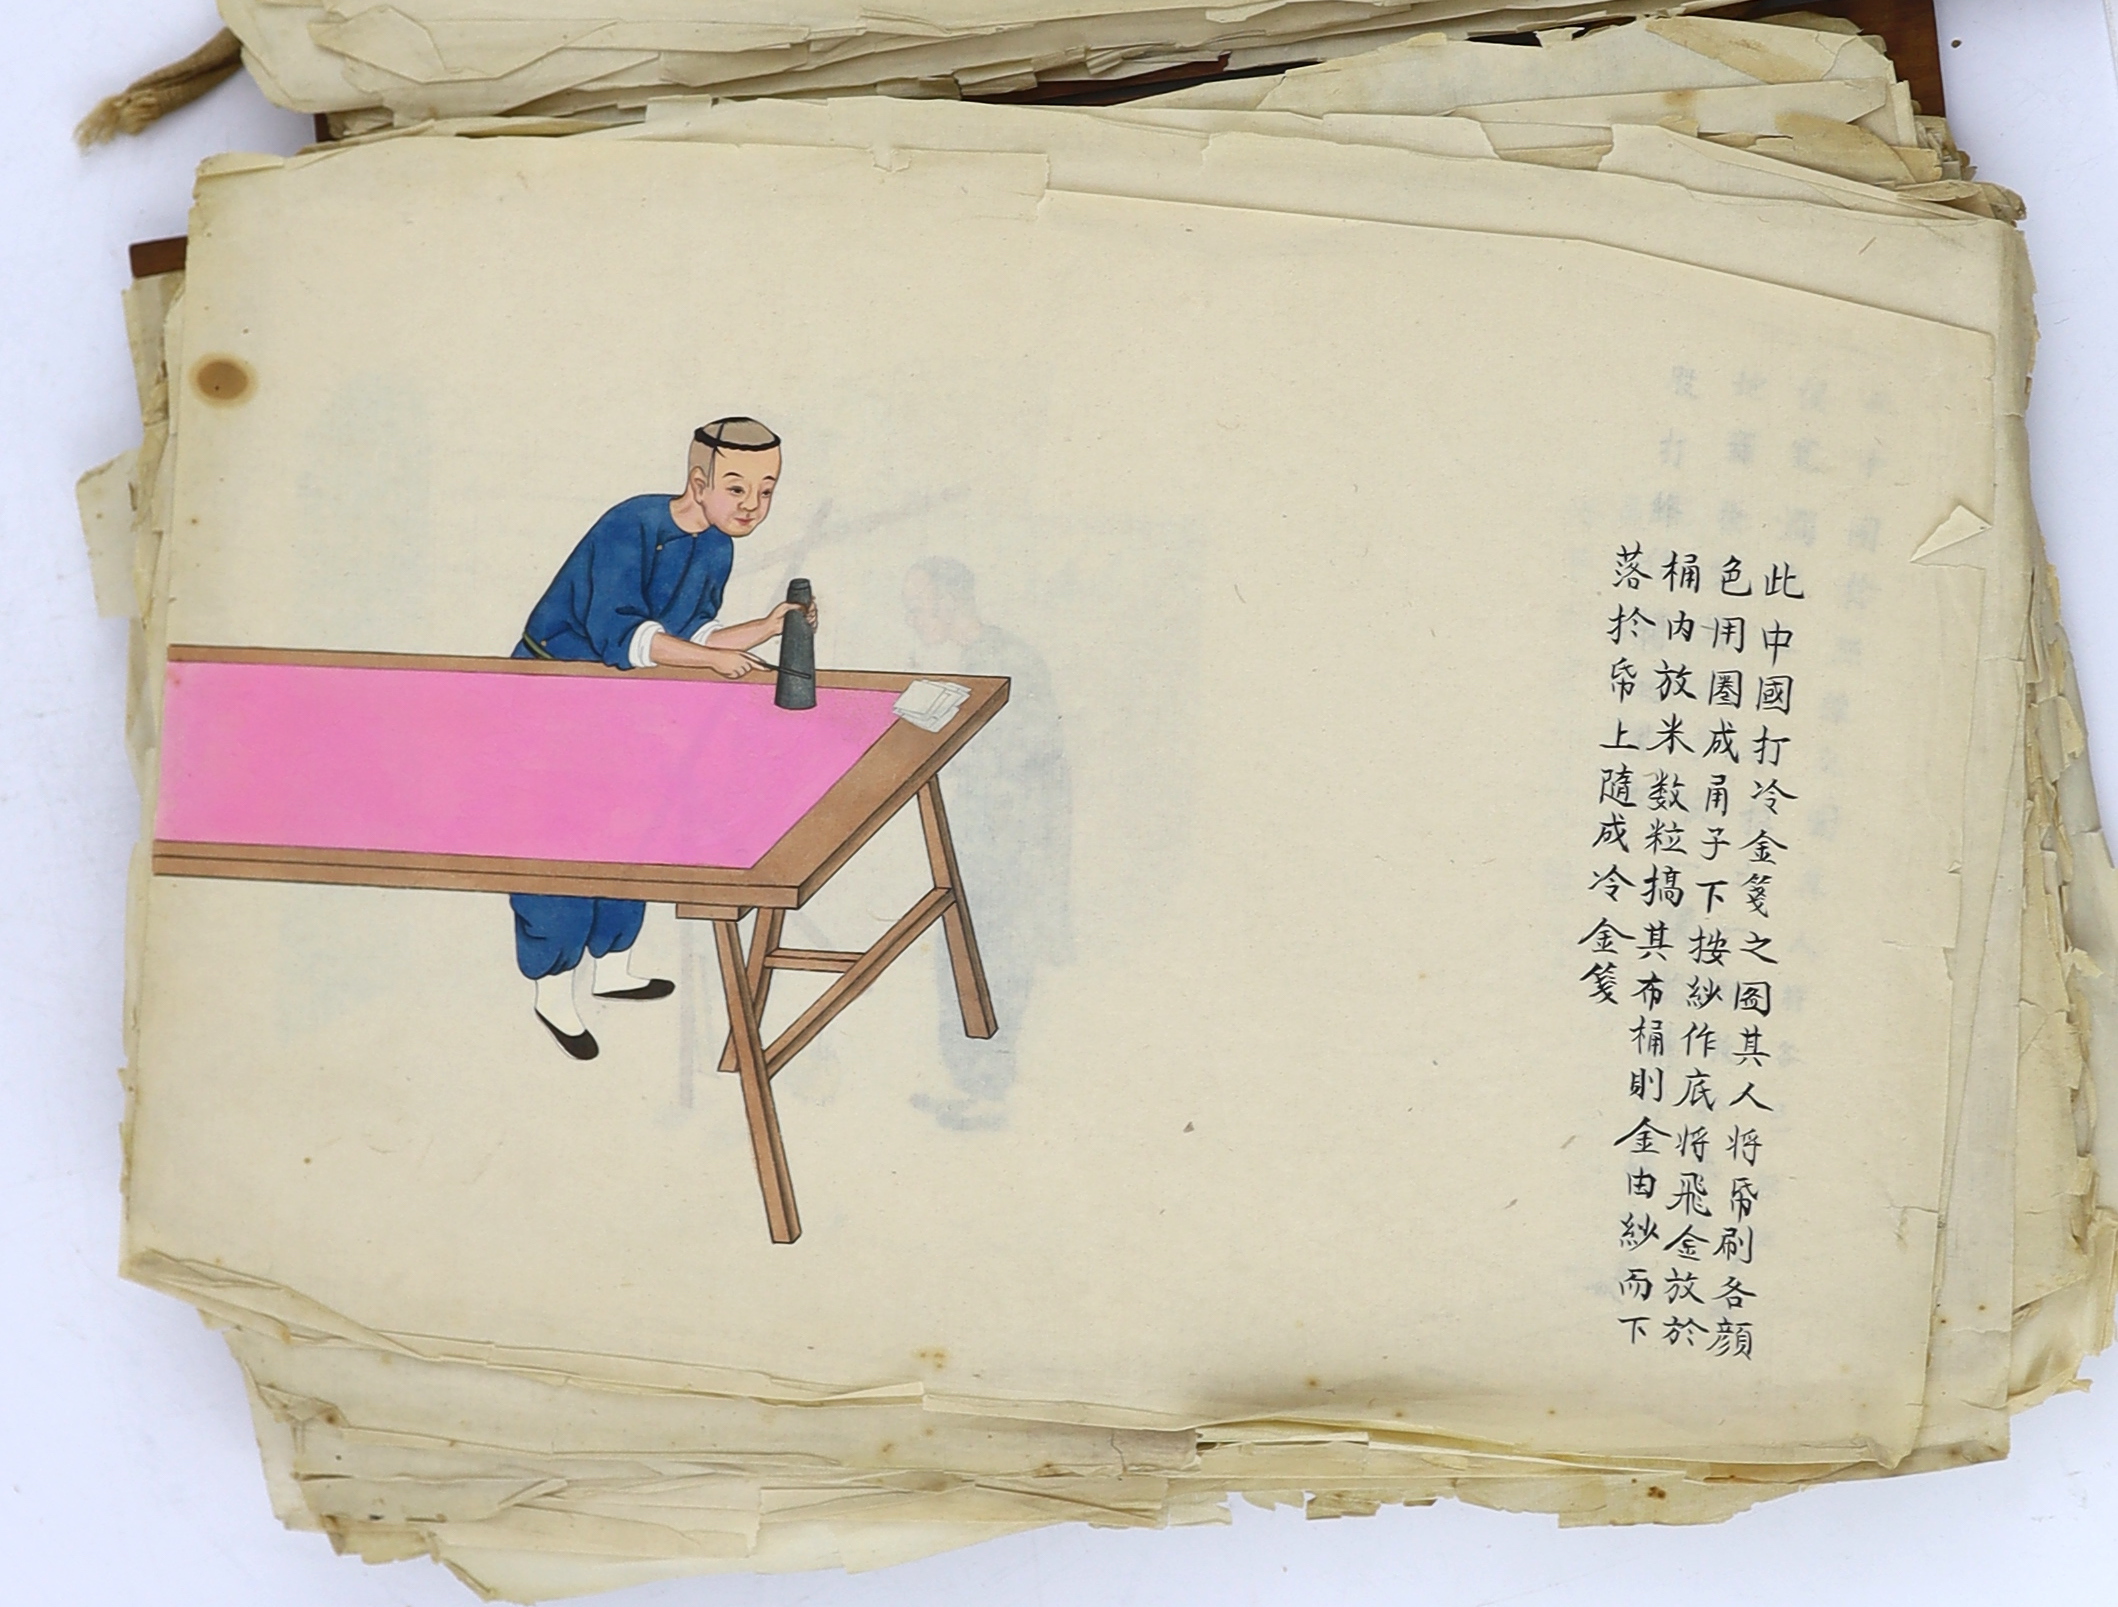 此中國打冷金箋之图其人将帋刷各顔
色用圈成甬子下按紗作底将飛金放於
桶内放米数粒搞其布桶則金由紗而下
落於帋上隨成冷金箋